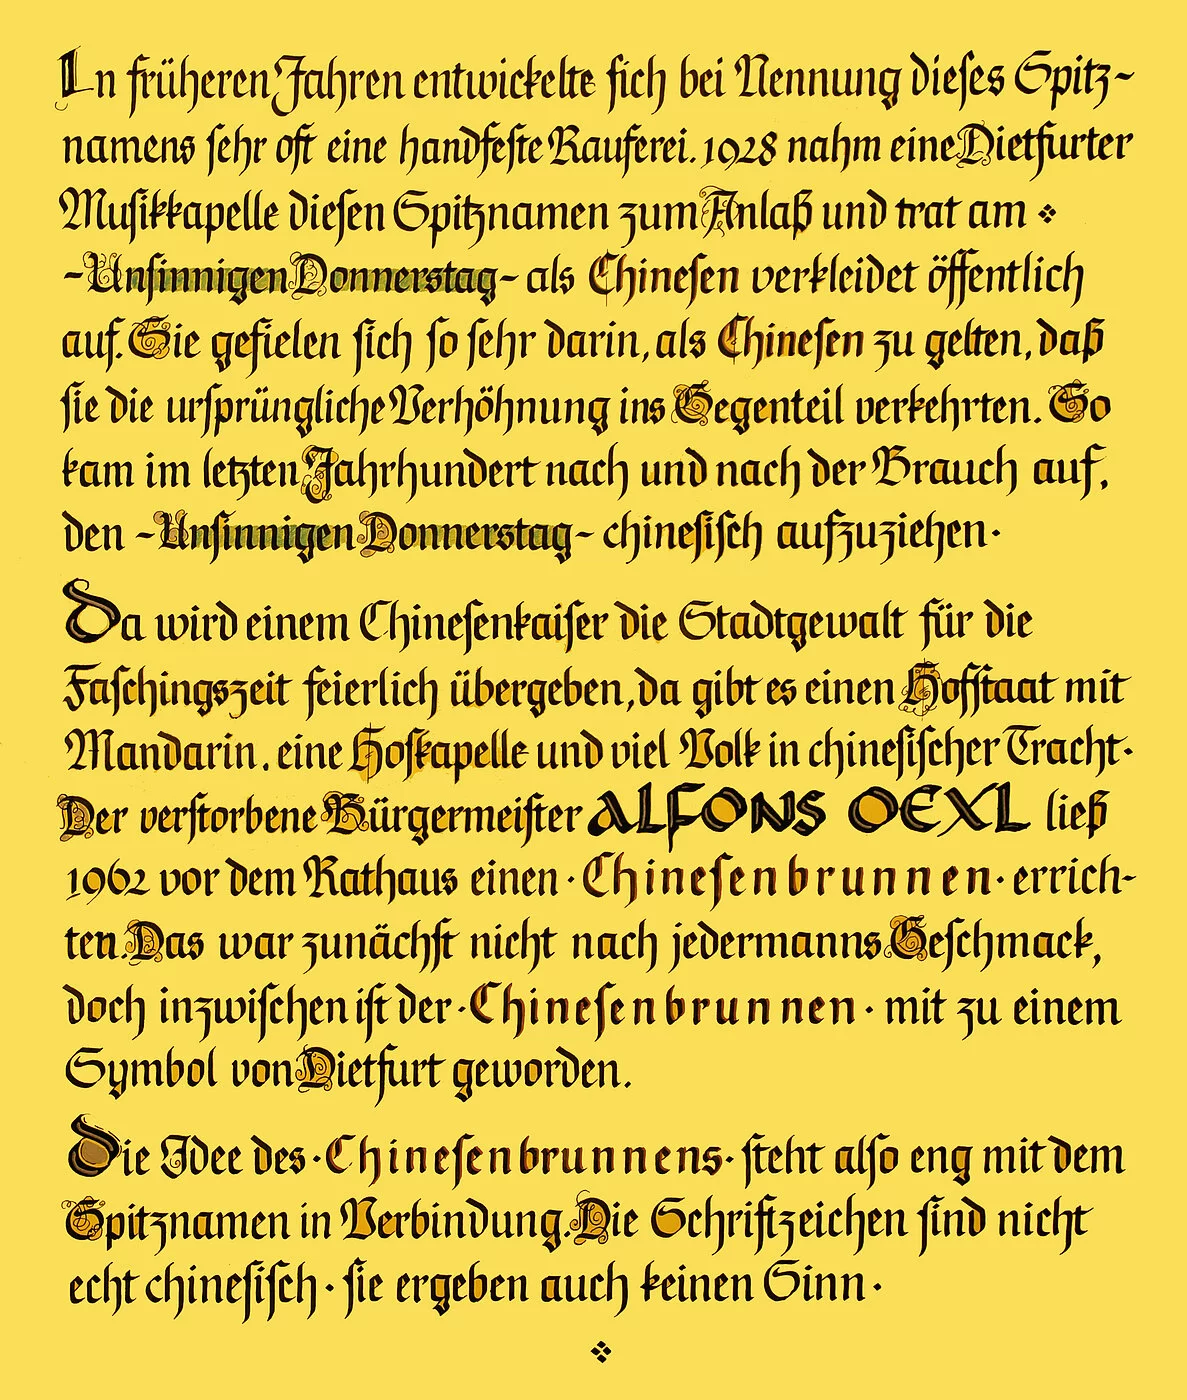 In früheren Jahren entwickelte sich bei Nennung dieses Spitz-
namens sehr oft eine handfeste Rauferei. 1928 nahm eine Dietfurter
Musikkapelle diesen Spitznamen zum Anlaß und trat am
-Unsinnigen Donnerstag- als Chinesen verkleidet öffentlich
auf. Sie gefielen sich so sehr darin, als Chinesen zu gelten, daß
sie die ursprüngliche Verhöhnung ins Gegenteil verkehrten. So
kam im letzten Jahrhundert nach und nach der Brauch auf,
den -Unsinnigen Donnerstag- chinesisch aufzuziehen·
Da wird einem Chinesenkaiser die Stadtgewalt für die
Faschingszeit feierlich übergeben, da gibt es einen Hofstaat mit
Mandarin, eine Hofkapelle und viel Volk in chinesischer Tracht·
Der verstorbene Bürgermeister ALFONS OEXL ließ
1962 vor dem Rathaus einen · Chinesenbrunnen · errich-
ten. Das war zunächst nicht nach jedermanns Geschmack,
doch inzwischen ist der · Chinesenbrunnen · mit zu einem
Symbol von Dietfurt geworden.
Die Idee des · Chinesenbrunnens · steht also eng mit dem
Spitznamen in Verbindung. Die Schriftzeichen sind nicht
echt chinesisch · sie ergeben auch keinen Sinn ·